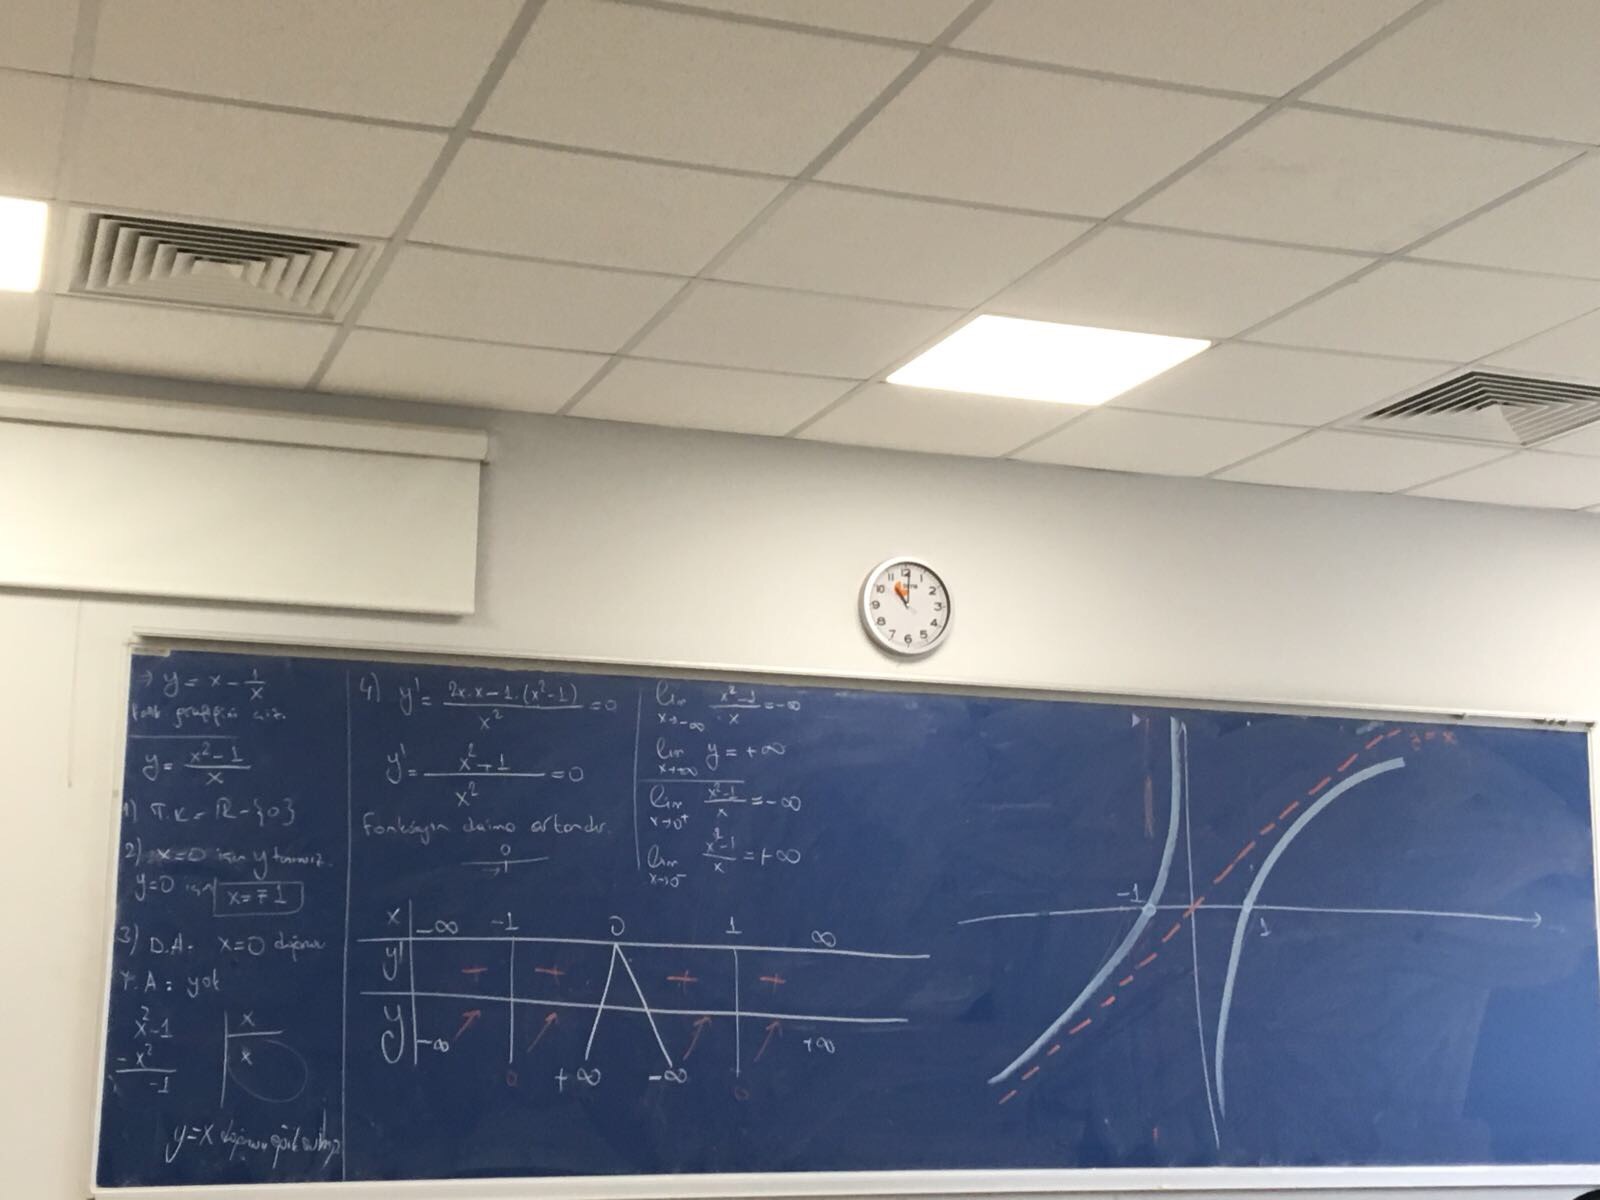 ⇒ y = x - 1/x
y = x²-1/x
1) T.K = R - {0}
2) x=0 için y tanımsız.
y=0 için x=∓1
3) D.A: x=0 doğrusu
Y.A: yok
x²-1 | x
- x² | x
-1
y=x doğrusu eğik asimp
4) y' = 2x.x-1.(x²-1)/x² = 0
y' = x²+1/x² = 0
Fonksiyon daima artandır.
0
lim x→-∞ x²-1/x = -∞
lim x→∞ y = +∞
lim x→0⁺ x²-1/x = -∞
lim x→0⁻ x²-1/x = +∞
x -∞ -1 0 1 ∞
y' + + + +
y -∞ 0 +∞ -∞ 0 +∞
y=x
-1 1
12 1 2 3 4 5 6 7 8 9 10 11